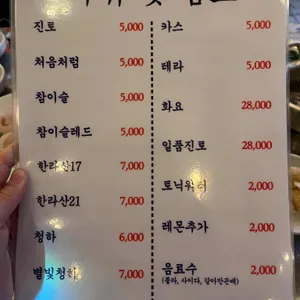 진토 5,000
처음처럼 5,000
참이슬 5,000
참이슬레드 5,000
한라산17 7,000
한라산21 7,000
청하 6,000
별빛청하 7,000
카스 5,000
테라 5,000
화요 28,000
일품진로 28,000
토닉워터 2,000
레몬추가 2,000
음료수 2,000
(콜라, 사이다, 갈아만든배)